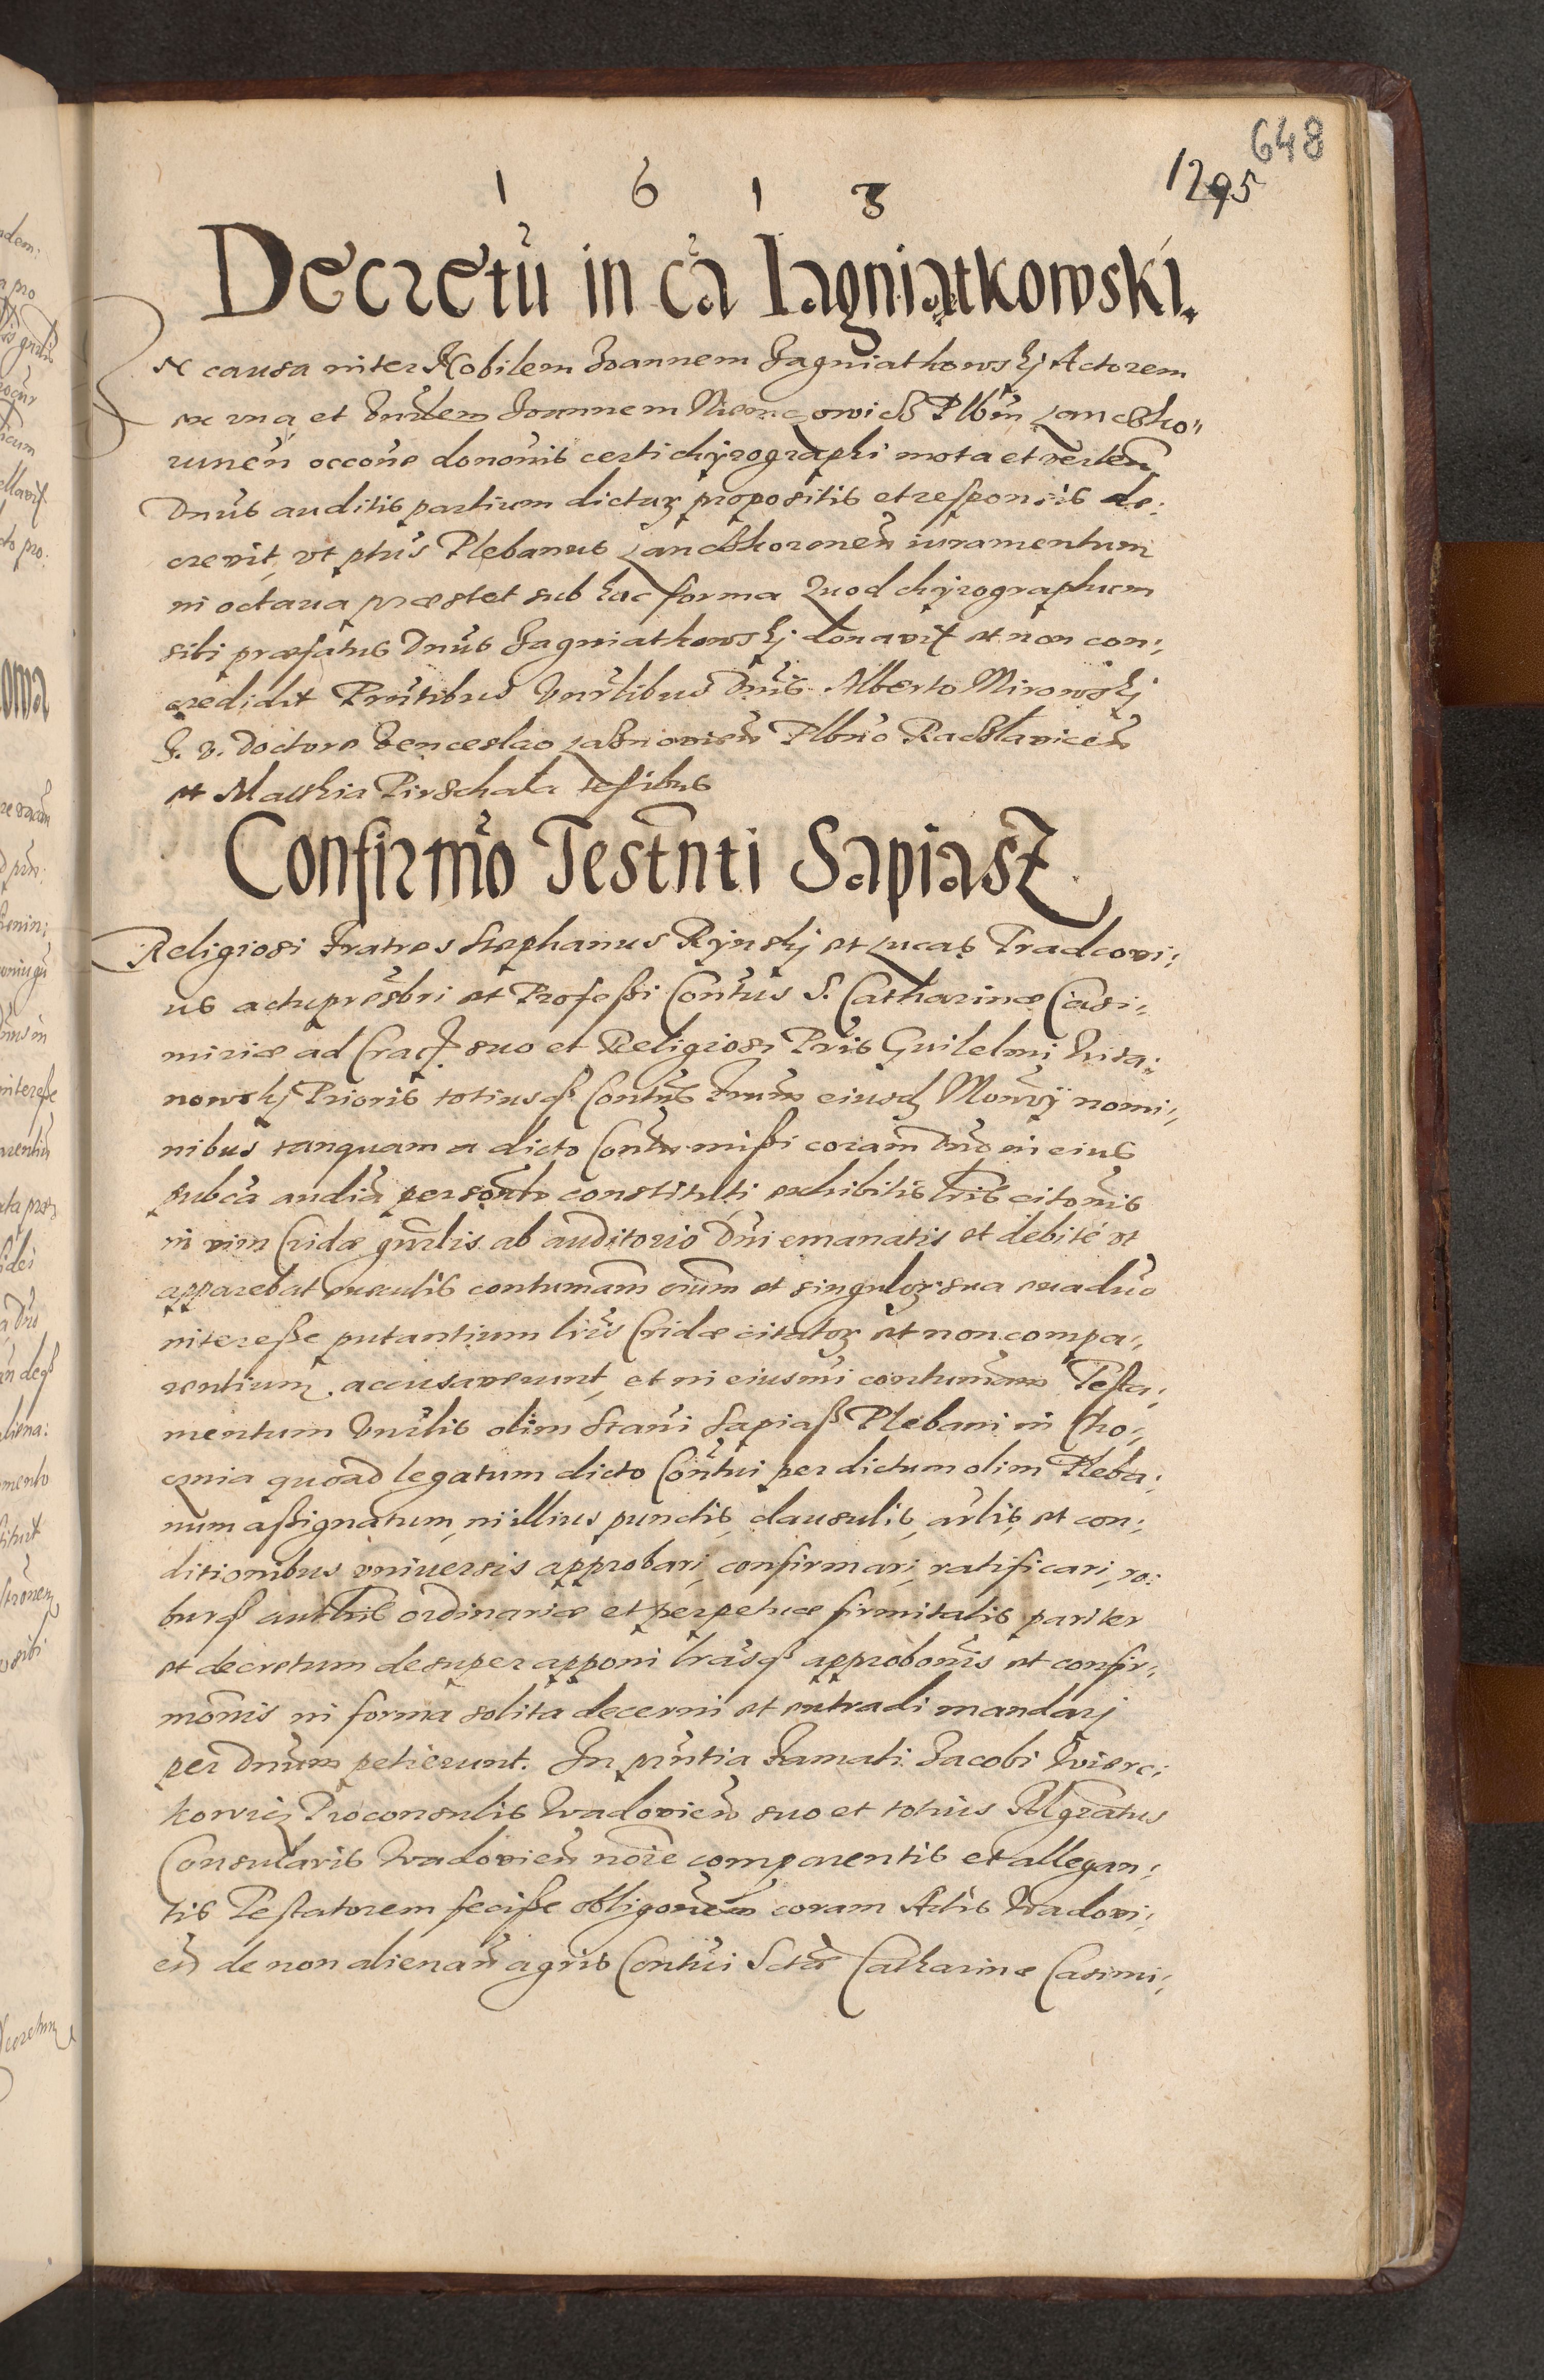 648
1295
1 6 1 3
Decretū in cā Jagniątkowski.
In causa inter Nobilem Joannem Jagniathowskj Actorem
ex vna et Vnrlem Joannem Plbm Lanczko„
runen̄ occone dononis certi chyrographi mota et vertem̄
Dnus auditis partium dictarz propositis et responsis de:
crevit, vt ptus Plebanus Lanczkoronen̄ iuramentum
in octava præstet sub hac forma Quod chyrographum
sibi præfatus Dnus Jagniathowskj donavit et non con:
credidit Pntibus Vnrlibus Dnis Alberto Mirowskj
J. V. Doctore Venceslao Plbno Racslavicen̄
et Matthia Pirschala testibus
Confirmō Testn̄ti Sapiasz
Religiosi Fratres Stephanus Rynskj et Lucas Pradcovi:
us actu presbri et Professi Contus S. Catharinæ Casi:
miriæ ad Crac suo et Religiosi Pris Guilelmi
nowskj Prioris totiusq Contus Frum eiusd Monrij nomi:
nibus tanquam a dicto Contu missi coram Dno in eius
pubca audia personlr constituti exhibitis lris citonis
in vim Cridæ gnrlis ab auditorio Dni emanatis et debite vt
apparebat executis contumam oium et singulorz sua quaduo
interesse putantium lris Cridæ citatorz et non compa:
rentium accusaverunt, et in eiusmi contumam Testa:
mentum Vnrlis olim Stani Sapiasz Plebani in Cho:
cznia quoad legatum dicto Contui per dictum olim Pleba:
num assignatum, in illius punctis, clausulis, arlis, et con:
ditionibus vniversis approbari, confirmari, ratificari, ro:
burq authtis ordinariæ et perpetuæ firmitatis pariter
et decretum desuper apponi lrasq approbonis et confir:
monis in forma solita decerni et extradi mandarj
per Dnum petierunt. In pntia Famati Jacobi Wierc:
kowicz Proconsulis Wadovien̄ suo et totius Mgratus
Consularis Wadovien̄ noie comparentis et allegan:
tis Testatorem fecisse obligonem coram Actis Wadovi:
en̄ de non alienan̄ agris Contui Sctæ Catharinæ Casimi: